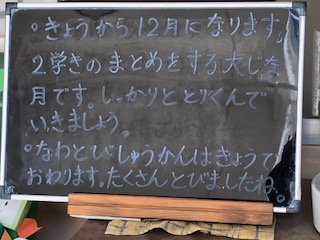 ○きょうから12月になります。
2学きのまとめをする大じな
月です。しっかりととりくんで
いきましょう。
○なわとびしゅうかんはきょうで
おわります。たくさんとびましたね。